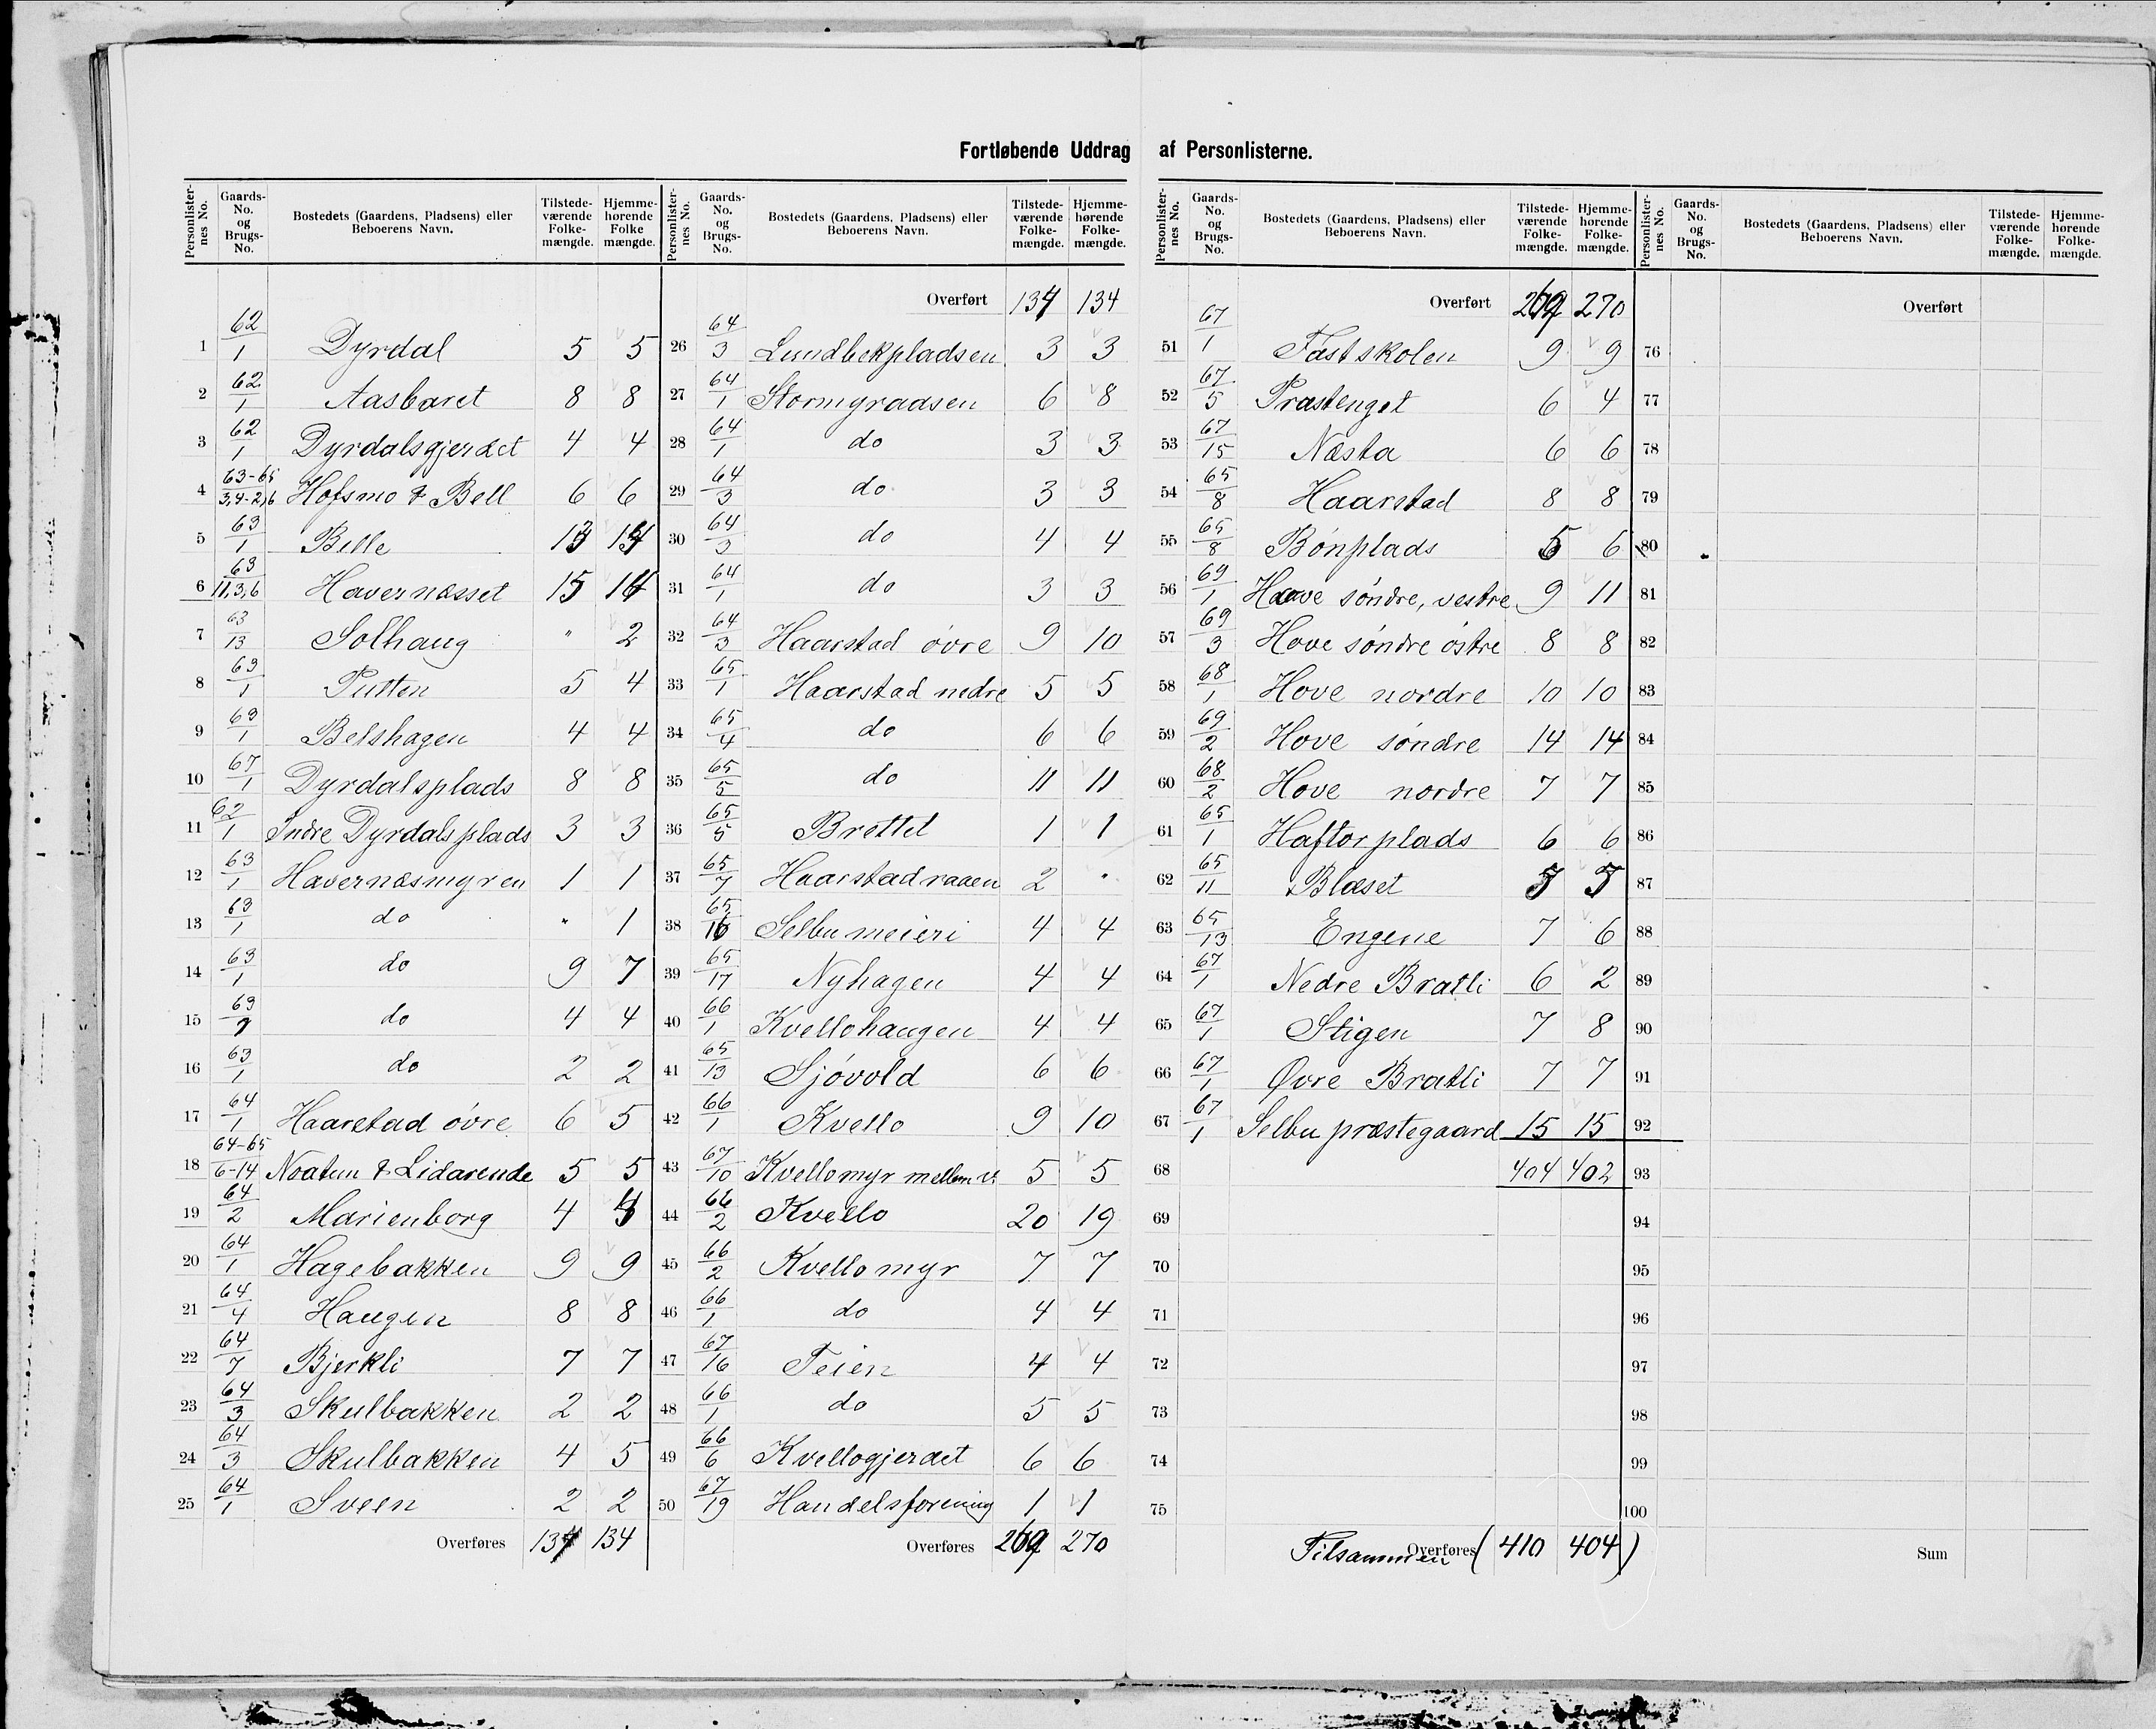 Fortløbende Uddrag af Personlisterne.
Personlisternes No. Gaards-No. og Brugs-No. Bostedets (Gaardens, Pladsens) eller Beboerens Navn. Tilstedeværende Folkemængde. Hjemmehørende Folkemængde.
1 62/1 Dyrdal 5 5
2 62/1 Aasbaret 8 8
3 62/1 Dyrdalsgjerdet 4 4
4 63-65/3,4-2,6 Hofsmo & Bell 6 6
5 63/1 Belle 13
6 63/11,3,6 Havernæsset 15
7 63/13 Solhaug " 2
8 63/1 Putten 5 4
9 63/1 Belshagen 4 4
10 67/1 Dyrdalsplads 8 8
11 62/1 Indre Dyrdalsplads 3 3
12 63/1 Havernæsmyren 1 1
13 63/1 do " 1
14 63/1 do 9 7
15 63/ do 4 4
16 63/1 do 2 2
17 64/1 Haarstad øvre 6 5
18 64-65/6-14 Noatun & Lidarende 5 5
19 64/2 Marienborg 4
20 64/1 Hagebakken 9 9
21 64/4 Haugen 8 8
22 64/7 Bjerkli 7 7
23 64/3 Skulbakken 2 2
24 64/3 Skulbakken 4 5
25 64/1 Sveen 2 2
Overføres 134
Personlisternes No. Gaards-No. og Brugs-No. Bostedets (Gaardens, Pladsens) eller Beboerens Navn. Tilstedeværende Folkemængde. Hjemmehørende Folkemængde.
Overført 134
26 64/3 Lundbekpladsen 3 3
27 64/1 Stormgraadsen 6 8
28 64/1 do 3 3
29 64/3 do 3 3
30 64/3 do 4 4
31 64/1 do 3 3
32 64/3 Haarstad øvre 9 10
33 65/1 Haarstad nedre 5 5
34 65/4 do 6 6
35 65/5 do 11 11
36 65/5 Brettet 1 1
37 65/7 Haarstadraaen 2 "
38 65/16 Selbu meieri 4 4
39 65/17 Nyhagen 4 4
40 66/1 Kvellohaugen 4 4
41 65/13 Sjøvold 6 6
42 66/1 Kvello 9 10
43 67/10 Kvellomyr mellem 5 5
44 66/2 Kvello 20 19
45 66/2 Kvellomyr 7 7
46 66/1 do 4 4
47 67/16 Teien 4 4
48 66/1 do 5 5
49 66/6 Kvellogjerdet 6 6
50 67/19 Handelsforening 1 1
Overføres 270
Personlisternes No. Gaards-No. og Brugs-No. Bostedets (Gaardens, Pladsens) eller Beboerens Navn. Tilstedeværende Folkemængde. Hjemmehørende Folkemængde.
Overført 270
51 67/1 Fastskolen 9 9
52 67/5 Præstenget 6 4
53 67/15 Næsta 6 6
54 65/8 Haarstad 8 8
55 65/8 Bønplads 6
56 69/1 Hove søndre, vestre 9 11
57 69/3 Hove søndre østre 8 8
58 68/1 Hove nordre 10 10
59 69/2 Hove søndre 14 14
60 68/2 Hove nordre 7 7
61 65/1 Haftorplads 6 6
62 65/11 Blæset
63 65/13 Engene 7 6
64 67/1 Nedre Bratli 6 2
65 67/1 Stigen 7 8
66 67/1 Øvre Bratli 7 7
67 67/1 Selbu præstegaard 15 15
68 404 402
69
70
71
72
73
74
75
Tilsammen Overføres (410 404)
Personlisternes No. Gaards-No. og Brugs-No. Bostedets (Gaardens, Pladsens) eller Beboerens Navn. Tilstedeværende Folkemængde. Hjemmehørende Folkemængde.
Overført
76
77
78
79
80
81
82
83
84
85
86
87
88
89
90
91
92
93
94
95
96
97
98
99
100
Sum